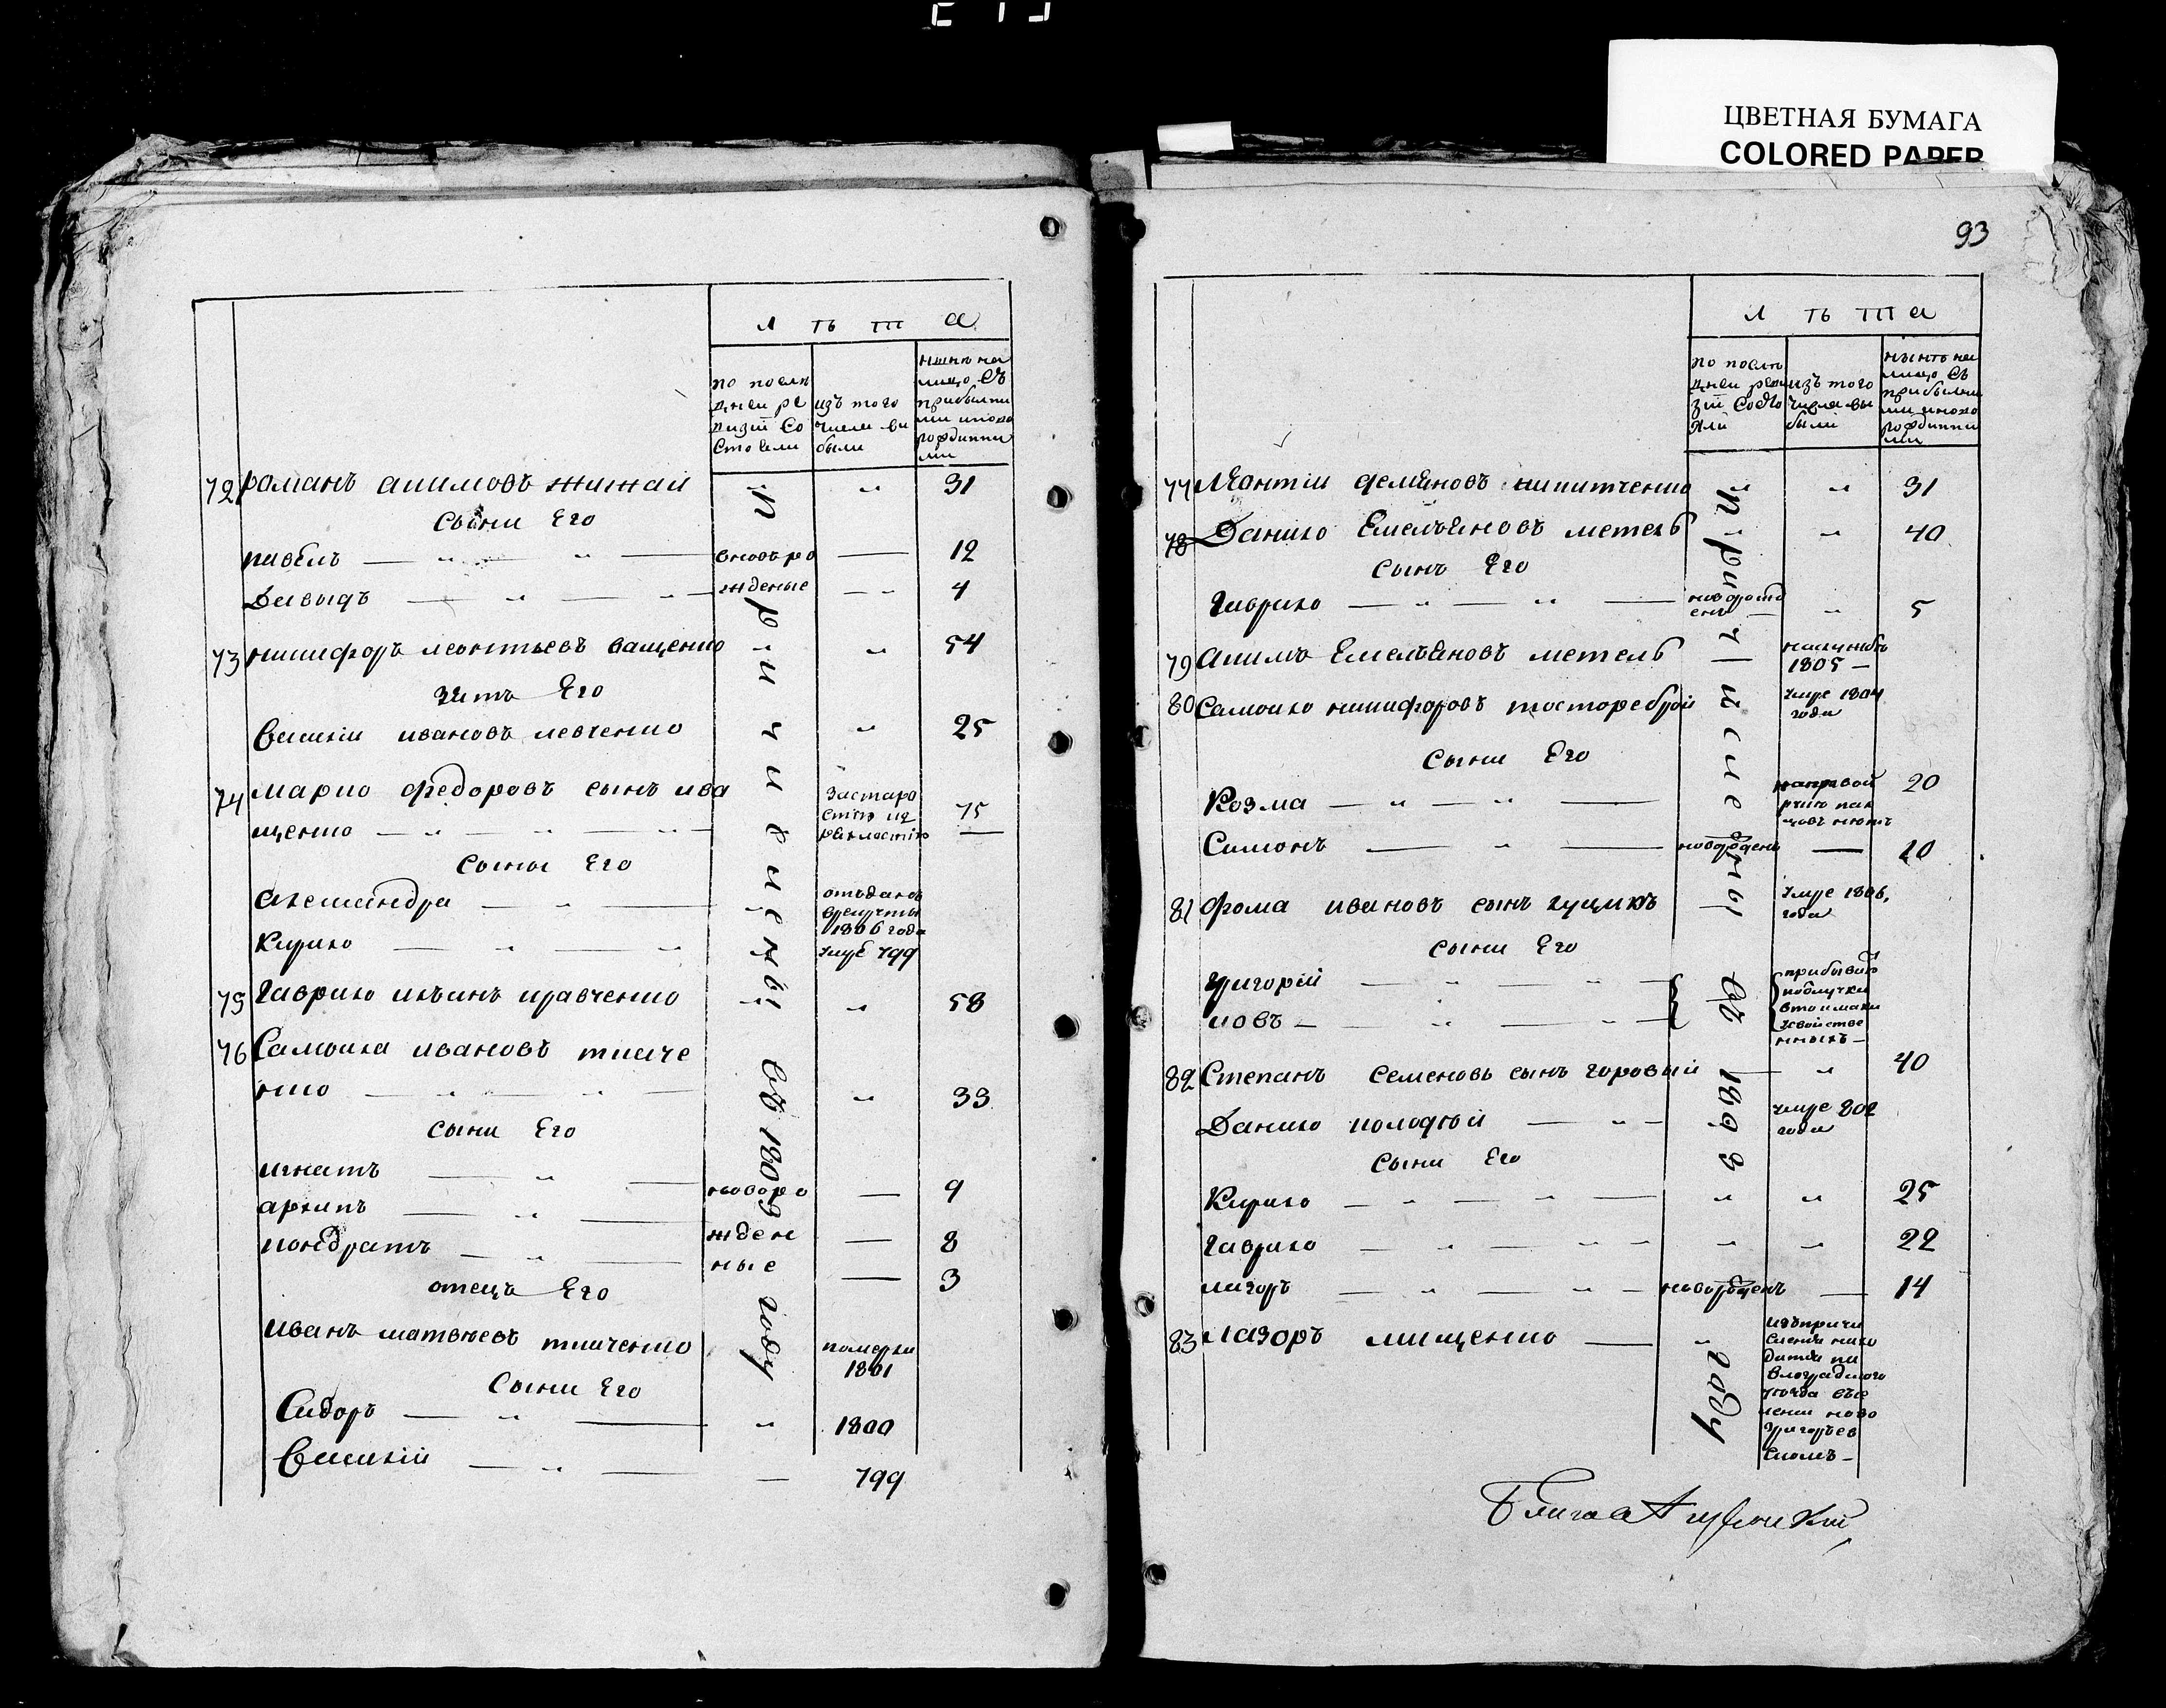 ЦВЕТНАЯ БУМАГА
COLORED PAPER
л ѣ т а
по послѣ
дней ре
визіи со
стояли
изъ того
числа вы
были
нынѣ на
лицо съ
прибылы
ми и ново
рожденны
ми
72 романъ акимовъ жижкій " 31
сыни Его
павелъ — " — " — вновь ро — 12
Давыдъ — " — " — жденые — 4
73 никифоръ леонтьевъ ващенко " 54
зять Его
василій ивановъ левченко " 25
74 марко федоровъ сынъ ива
щенко — " — " — 75
за старо
стію и д
ряхлостію
сыны Его
александра — " —
отъданъ
в рекруты
1806 года
Кирило — " — " умре 799
75 Гаврило ильинъ кравченко " 58
76 Самойла ивановъ ткаче
нко — " — " — " 33
сыни Его
игнатъ — " — новоро — 9
архипъ — " — жден — 8
кондратъ — " — ные — 3
отецъ Его
иванъ матвѣевъ ткаченко
померли
1801
Сыни Его
Сидоръ — " — " 1800
Василій — " — — 799
причисленны въ 1803 году
93
л ѣ т а
по послѣ
дней реви
зіи состо
яли
изъ того
числа вы
были
нынѣ на
лицо съ
прибылы
ми и ново
рожденны
ми
77 Леонтій демяновъ никитченко " " 31
78 Данило Емельяновъ метель " 40
сынъ Его
Гаврило — " — " — новорожд
енъ — " 5
79 акимъ Емельяновъ метель
1805 —
80 Самойло никифоровъ тосторебрій
умре 1804
года
Сыни Его
Козма — " — " — 20
Самонъ — " — новорожденъ — 10
81 фома ивановъ сынъ куцикъ
умре 1806,
года
сыни Его
григорій — " — " —
яковъ — " — " —
82 Степанъ семеновъ сынъ горовый — " 40
Данило колодѣй — " —
умре 802
года
Сыни Его
Кирило — " — " — " " 25
гаврило — " — " — " " 22
лазоръ — " — " — новорожденъ — 14
83 лазоръ мищенко — "
григорьев
скомъ —
причисленны въ 1803 году